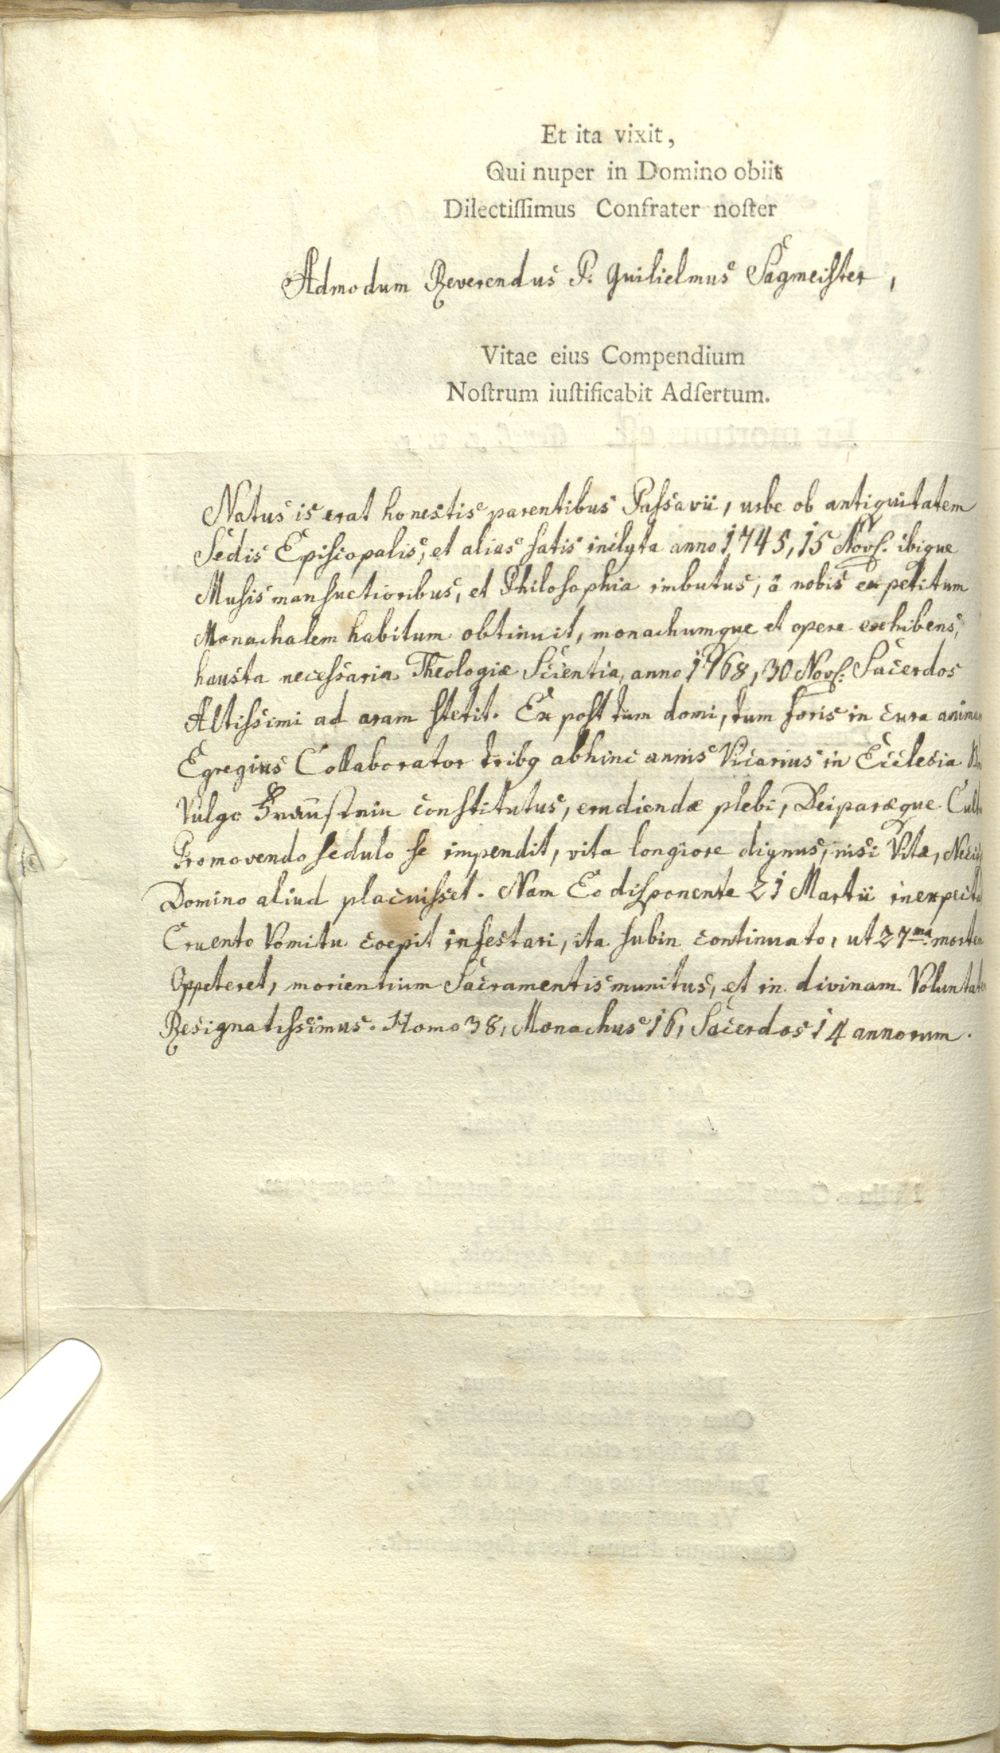 Et ita vixit,
Qui nuper in Domino obiit
Dilectiſſimus Confrater noſter
Admodum Reverendus P. Guilielmus Sagmeister,
Vitae eius Compendium
Noſtrum iuſtificabit Adſertum.
Natus is erat honestis parentibus Passavii, urbe ob antiquitatem
Sedis Episcopalis, et alias satis inclyta anno 1745, 15 Novs. ibique
Musis mansuetioribus, et Philosophia imbutus, a nobis expetitum
Monachalem habitum obtinuit, monachumque et opere exhibens,
hausta necessaria Theologiæ Scientia, anno 1768, 30 Novs. Sacerdos
Altissimi ad aram stetit. Ex post tum domi, tum foris in cura
Egregius Collaborator tribq abhinc annis Vicarius in Ecclesia
Vulgo constitutus, erudiendæ plebi, Deiparæque
Promovendo sedulo se impendit, vita longiore dignus, nisi Vitæ,
Domino aliud placuisset. Nam Eo disponente 21 Martii
Cruento Vomitu coepit infestari, ita subin continuato, ut 27ma
Oppeteret, morientium Sacramentis munitus, et in divinam
Resignatissimus. Homo 38, Monachus 16, Sacerdos 14 annorum.